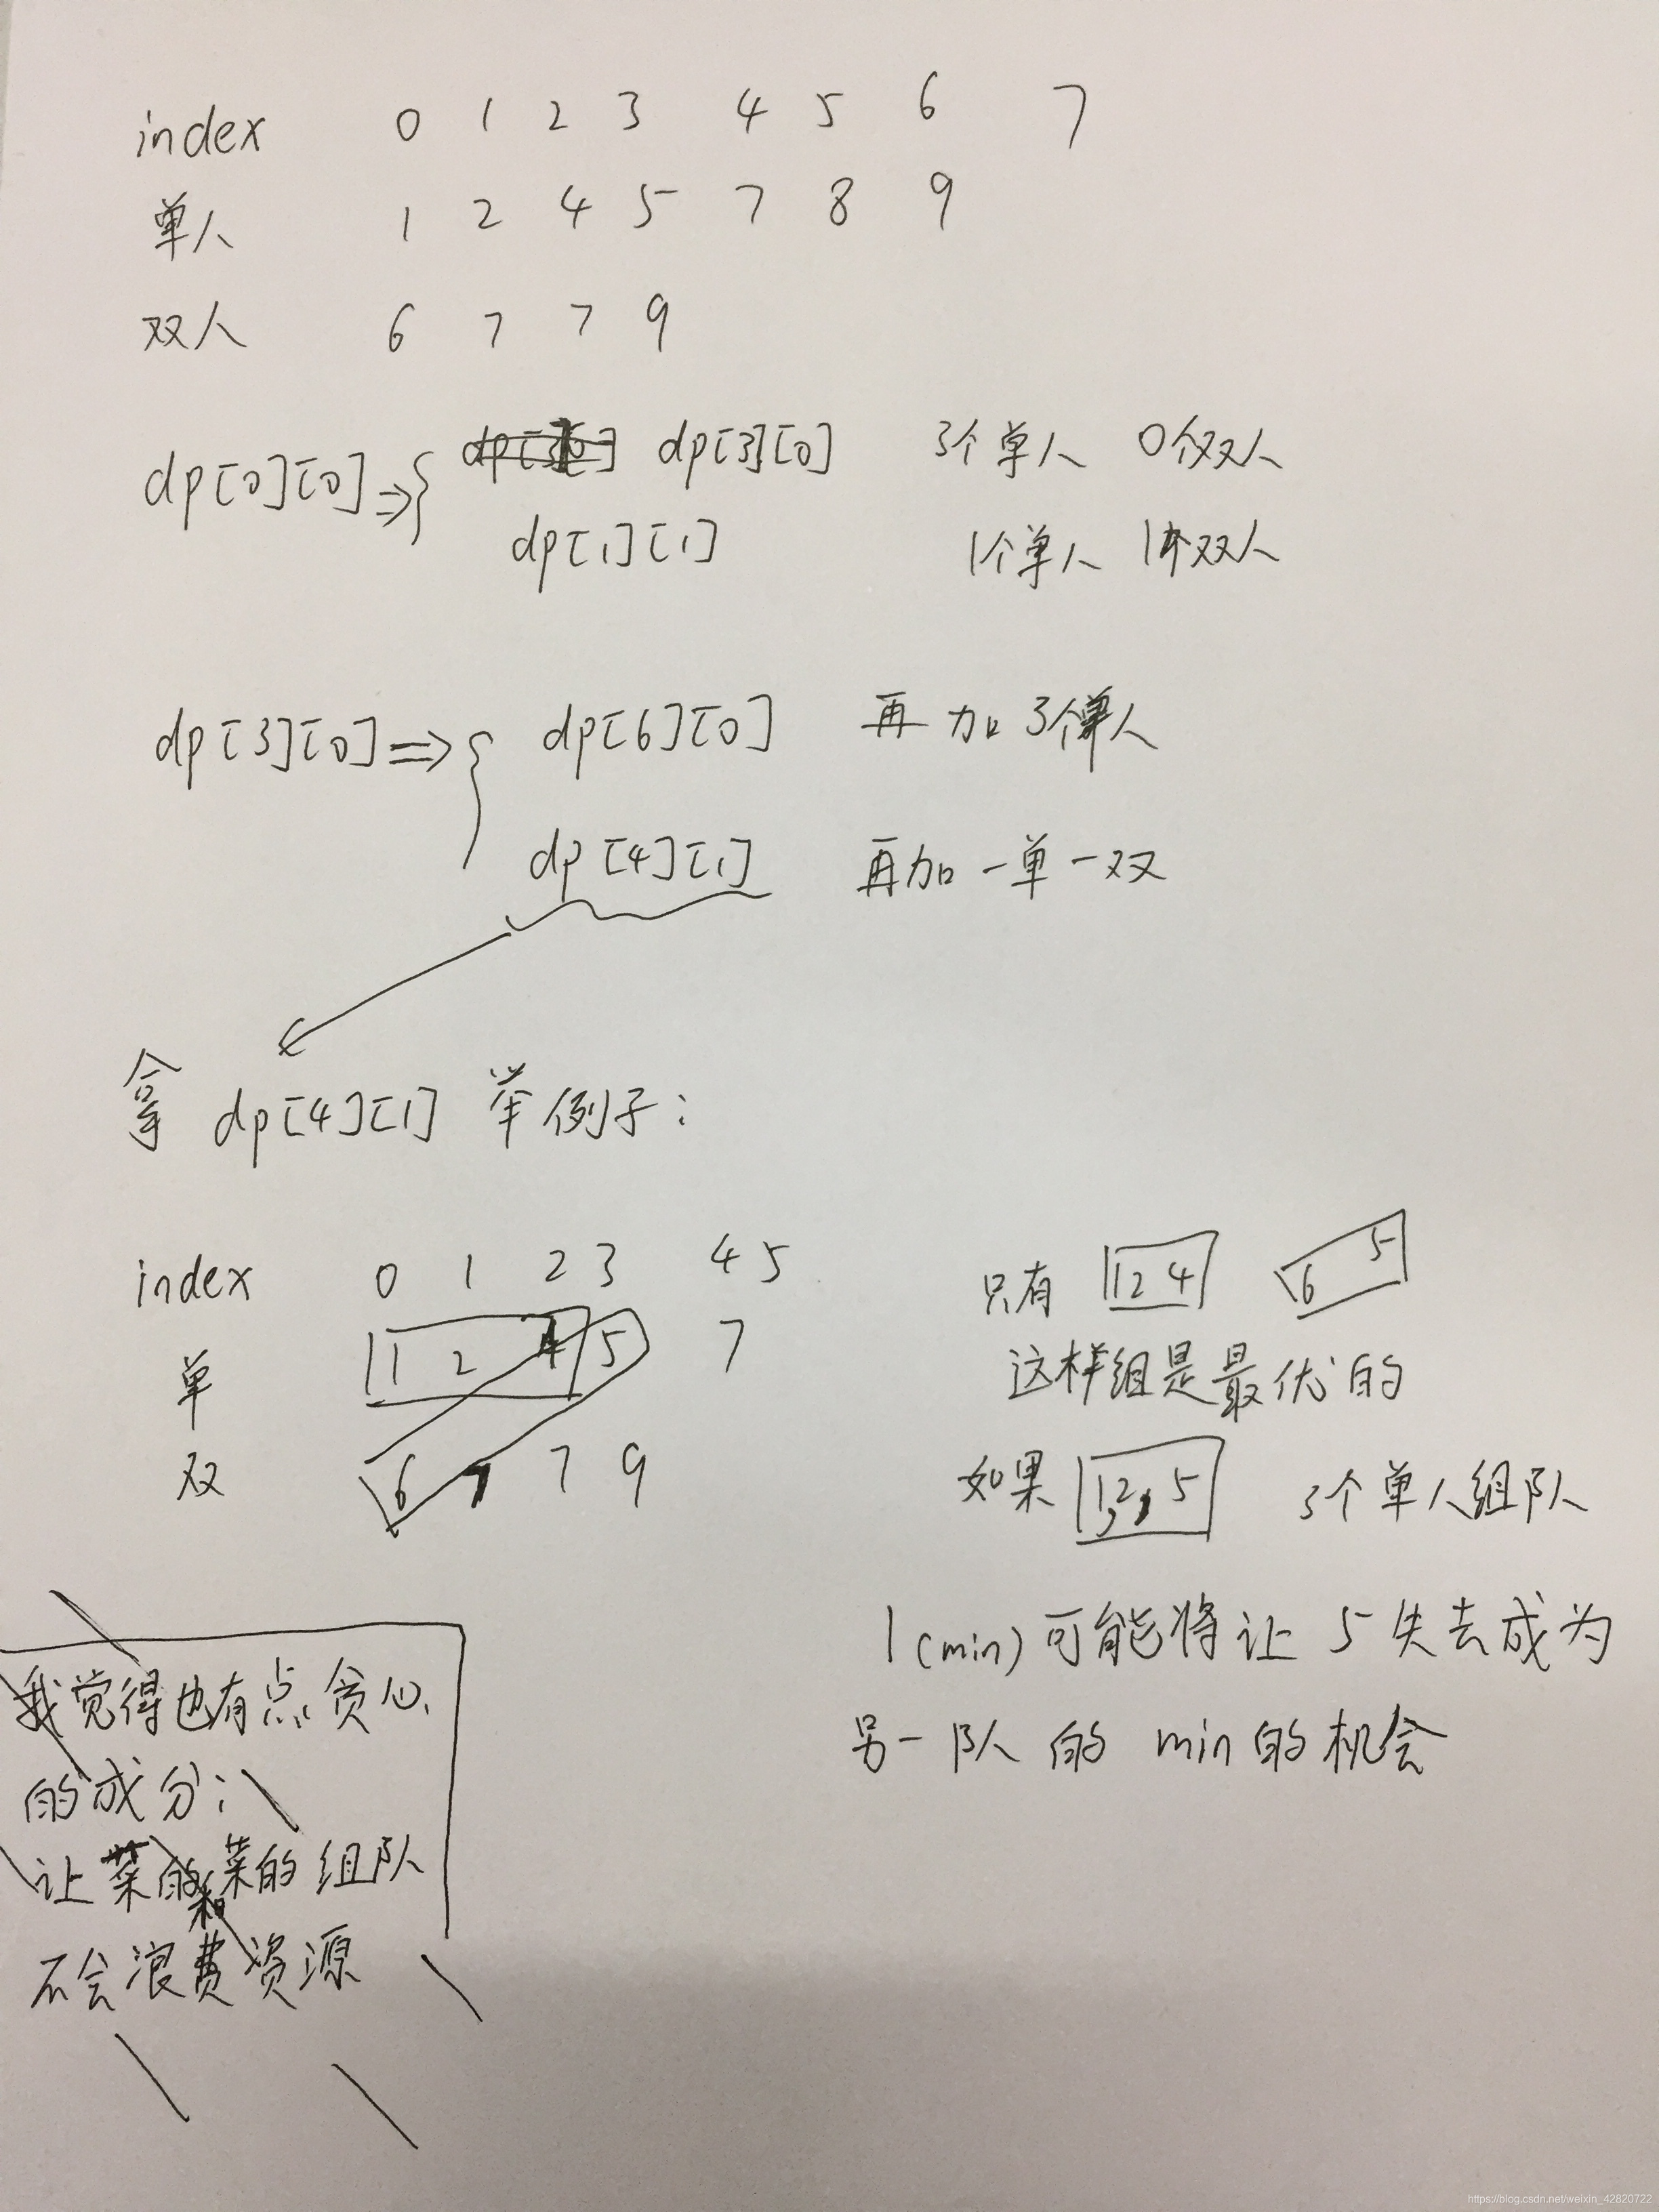 index 0 1 2 3 4 5 6 7
单人 1 2 4 5 7 8 9
双人 6 7 7 9
dp[0][0] ⇒ { dp[3][0] 3个单人 0个双人
dp[1][1] 1个单人 1个双人
dp[3][0] ⇒ { dp[6][0] 再加3个单人
dp[4][1] 再加一单一双
拿 dp[4][1] 举例子:
index 0 1 2 3 4 5
单 1 2 4 5 7
双 6 7 7 9
只有 1 2 4 6 5
这样组是最优的
如果 1 2, 5 3个单人组队
1(min)可能将让5失去成为
另一队的min的机会
我觉得也有点贪心
的成分:
让菜的和菜的组队
不会浪费资源
https://blog.csdn.net/weixin_42820722